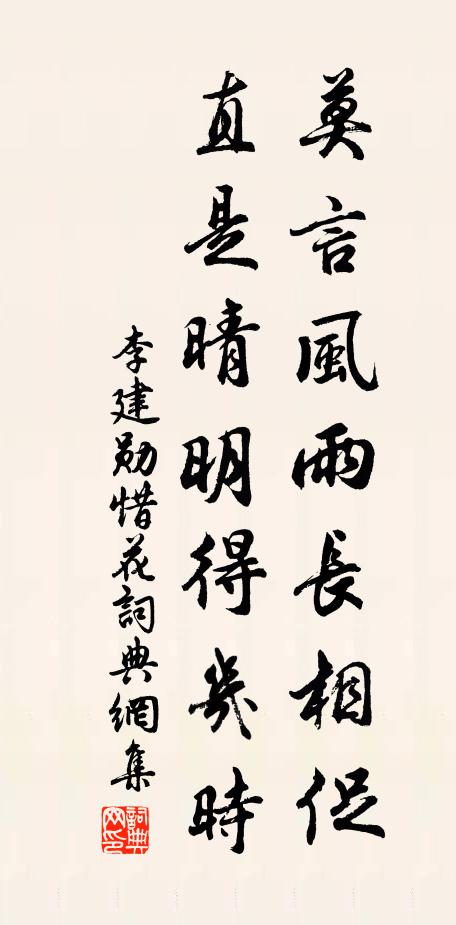 莫言風雨長相促
直是晴明得幾時
李建勛惜花詞典網集
詞典網印